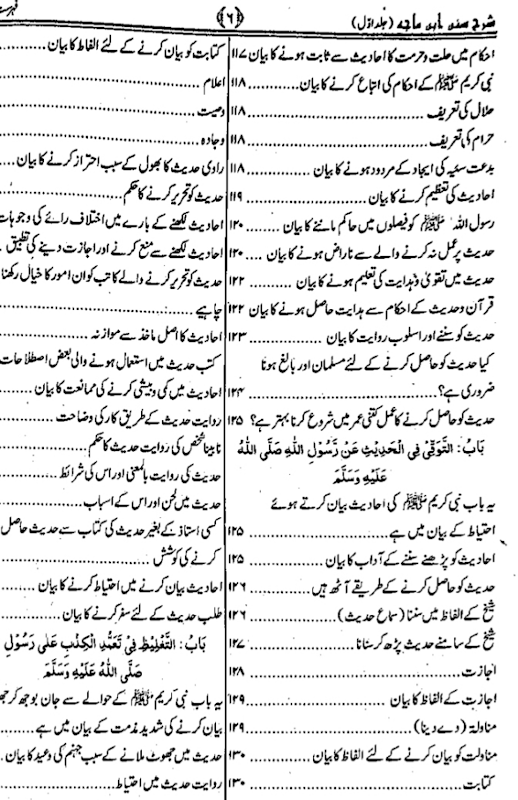 شرح سنن ابن ماجه (جلد اوّل)
﴿۶﴾
احکام میں حلت وحرمت کا احادیث سے ثابت ہونے کا بیان ۱۱۷
نبی کریم ﷺ کے احکام کی اتباع کرنے کا بیان ............ ۱۱۸
حلال کی تعریف ............ ۱۱۸
حرام کی تعریف ............ ۱۱۸
بدعت سئیہ کی ایجاد کے مردود ہونے کا بیان ............ ۱۱۸
احادیث کی تعظیم کرنے کا بیان ............ ۱۱۹
رسول اللہ ﷺ کو فیصلوں میں حاکم ماننے کا بیان ............ ۱۲۰
حدیث پر عمل نہ کرنے والے سے ناراض ہونے کا بیان .... ۱۲۰
حدیث میں تقویٰ وہدایت کی تعلیم ہونے کا بیان ............ ۱۲۲
قرآن وحدیث کے احکام سے ہدایت حاصل ہونے کا بیان ۱۲۲
حدیث کو سننے اور اسلوب روایت کا بیان ............ ۱۲۳
کیا حدیث کو حاصل کرنے کے لئے مسلمان اور بالغ ہونا
ضروری ہے؟ ............ ۱۲۴
حدیث کو حاصل کرنے کا عمل کتنی عمر میں شروع کرنا بہتر ہے؟ ۱۲۵
بَابُ: التَّوَقِّيْ فِي الْحَدِيْثِ عَنْ رَّسُوْلِ اللّٰهِ صَلَّى اللّٰهُ
عَلَيْهِ وَسَلَّمَ
یہ باب نبی کریم ﷺ کی احادیث بیان کرتے ہوئے
احتیاط کے بیان میں ہے ............ ۱۲۵
احادیث کو پڑھنے سننے کے آداب کا بیان ............ ۱۲۵
حدیث کو حاصل کرنے کے طریقے آٹھ ہیں ............ ۱۲۶
شیخ کے الفاظ میں سننا (سماع حدیث) ............ ۱۲۶
شیخ کے سامنے حدیث پڑھ کر سنانا ............ ۱۲۷
اجازت ............ ۱۲۸
اجازت کے الفاظ کا بیان ............ ۱۲۹
مناولۃ (دے دینا) ............ ۱۲۹
مناولت کو بیان کرنے کے لئے الفاظ کا بیان ............ ۱۳۰
کتابت ............ ۱۳۰
کتابت کو بیان کرنے کے لئے الفاظ کا بیان ....
اعلام ............
وصیت ............
وجادہ ............
راوی حدیث کا بھول کے سبب احتراز کرنے کا بیان ..
حدیث کو تحریر کرنے کا حکم ............
احادیث لکھنے کے بارے میں اختلاف رائے کی وجوہات
احادیث لکھنے سے منع کرنے اور اجازت دینے کی تطبیق .
حدیث کو تحریر کرنے والے کاتب کو ان امور کا خیال رکھنا
چاہیے ............
احادیث کا اصل ماخذ سے موازنہ ............
کتب حدیث میں استعمال ہونے والی بعض اصطلاحات
احادیث میں کمی وبیشی کرنے کی ممانعت کا بیان ....
روایت حدیث کے طریق کار کی وضاحت ............
نابینا شخص کی روایت حدیث کا حکم ............
حدیث کی روایت بالمعنی اور اس کی شرائط ............
حدیث میں لحن اور اس کے اسباب ............
کسی استاذ کے بغیر حدیث کی کتاب سے حدیث حاصل
کرنے کی کوشش ............
احادیث بیان کرنے میں احتیاط کرنے کا بیان ....
طلب حدیث کے لئے سفر کرنے کا بیان ............
بَابُ: التَّغْلِيْظِ فِيْ تَعَمُّدِ الْكِذْبِ عَلٰى رَسُوْلِ
صَلَّى اللّٰهُ عَلَيْهِ وَسَلَّمَ
یہ باب نبی کریم ﷺ کے حوالے سے جان بوجھ کر
بیان کرنے کی شدید مذمت کے بیان میں ہے ............
حدیث میں جھوٹ ملانے کے سبب جہنم کی وعید کا بیان .
روایت حدیث میں احتیاط ............